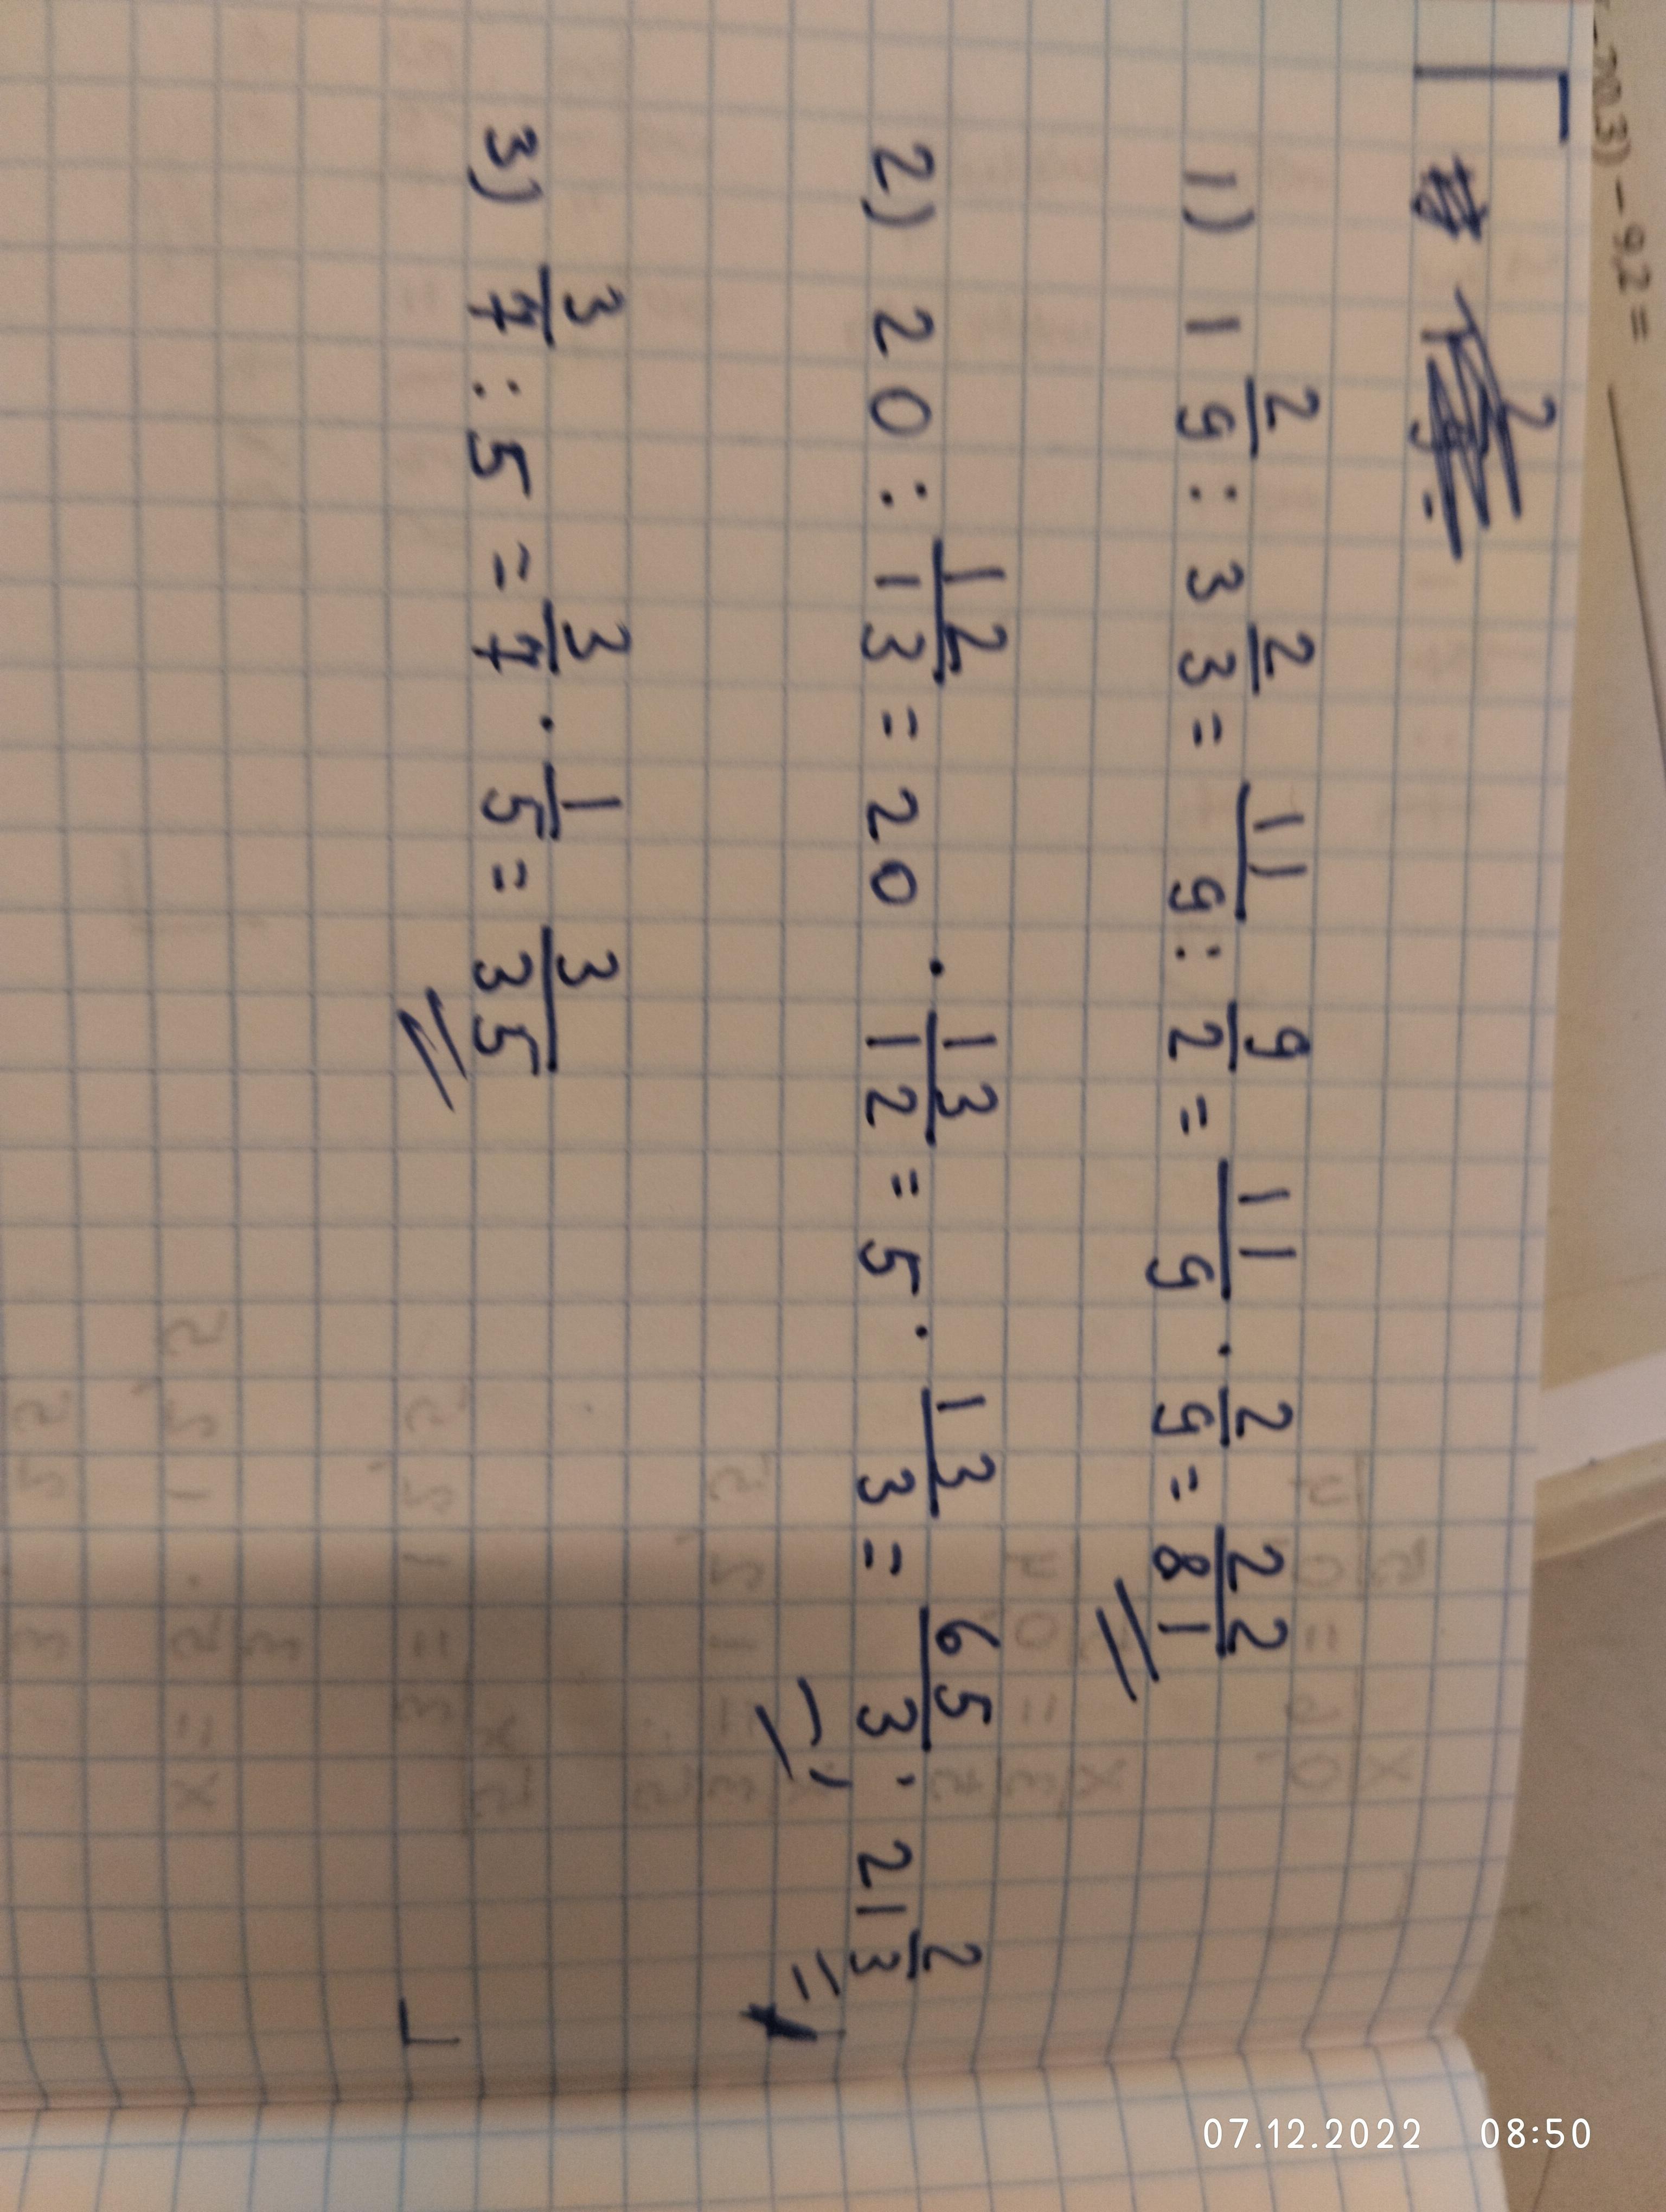 -70,3) - 9,2 =
1) 1 2/9 : 3 2/3 = 11/9 : 9/2 = 11/9 · 2/9 = 22/81
2) 20 : 12/13 = 20 · 13/12 = 5 · 13/3 = 65/3, 21 2/3
3) 3/7 : 5 = 3/7 · 1/5 = 3/35
07.12.2022 08:50